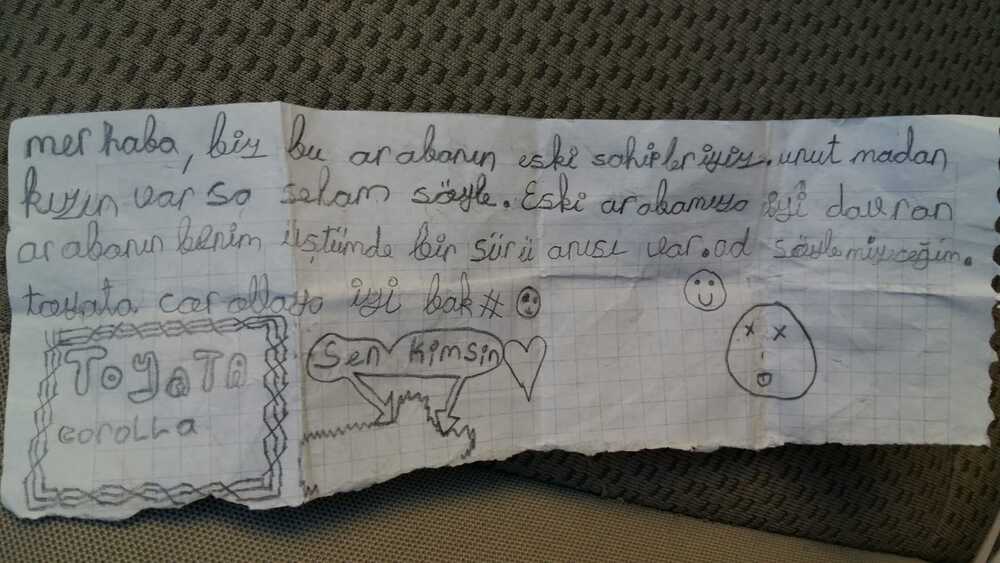 merhaba, biz bu arabanın eski sahipleriyiz. unutmadan
kızın varsa selam söyle. Eski arabamıza iyi davran
arabanın benim üstümde bir sürü anısı var. ad söylemiyeceğim.
toyata corollaya iyi bak #
Sen Kimsin
ToyaTa
corolla